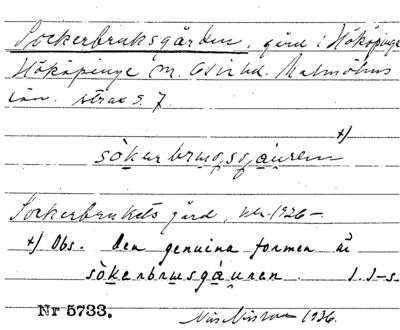 Sockerbruksgården, gård i Hököpinge
Hököpinge sn. Oxie hd. Malmöhus
län. strax S. 7.
+)
sòkerbrusgåuren
Sockerbrukets gård, 1926-
+) Obs. den genuina formen är
sòkerbrusgàuren. I. I-s.
Nr 5733.
Nils Nilsson 1926.